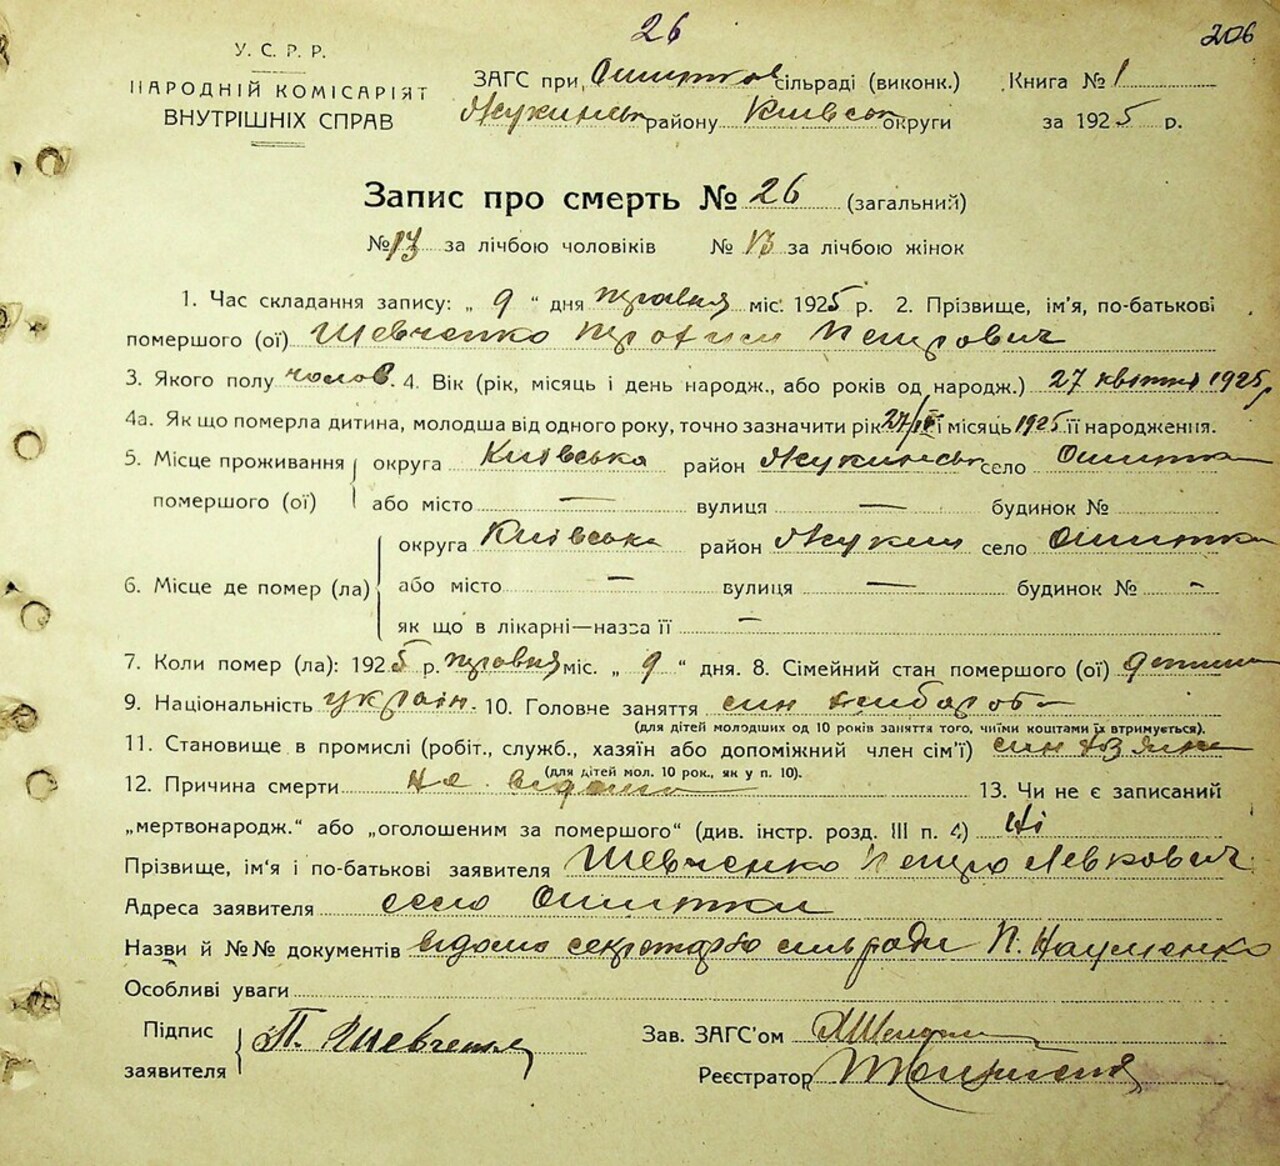 26
206
У. С. Р. Р.
НАРОДНІЙ КОМІСАРІЯТ
ВНУТРІШНІХ СПРАВ
ЗАГС при Ошитков сільраді (виконк.)
Жукинськ району Київськ округи
Книга № 1
за 1925 р.
Запис про смерть № 26 (загальний)
№ 13 за лічбою чоловіків № 13 за лічбою жінок
1. Час складання запису: „ 9 “ дня травня міс. 1925 р. 2. Прізвище, ім'я, по-батькові
помершого (ої) Шевченко Трофим Петрович
3. Якого полу чолов. 4. Вік (рік, місяць і день народж., або років од народж.) 27 квітня 1925 р
4а. Як що померла дитина, молодша від одного року, точно зазначити рік 27/IV і місяць 1925 її народження.
5. Місце проживання помершого (ої) округа Київська район Жукинськ село Ошитки
або місто — вулиця — будинок №
6. Місце де помер (ла) округа Київська район Жукин село Ошитки
або місто — вулиця — будинок № -
як що в лікарні—назва її —
7. Коли помер (ла): 1925 р. травня міс. „ 9 “ дня. 8. Сімейний стан помершого (ої) дитина
9. Національність україн. 10. Головне заняття син хлібороба
(для дітей молодших од 10 років заняття того, чиїми коштами їх втримується).
11. Становище в промислі (робіт., служб., хазяїн або допоміжний член сім'ї) син хазяїна
(для дітей мол. 10 рок., як у п. 10).
12. Причина смерти не відома 13. Чи не є записаний
„мертвонародж.“ або „оголошеним за помершого“ (див. інстр. розд. III п. 4) Ні
Прізвище, ім'я і по-батькові заявителя Шевченко Петро Левкович
Адреса заявителя село Ошитки
Назви й №№ документів відомо секретарю сільради П. Науменко
Особливі уваги
Підпис заявителя П. Шевченко
Зав. ЗАГС'ом
Реєстратор